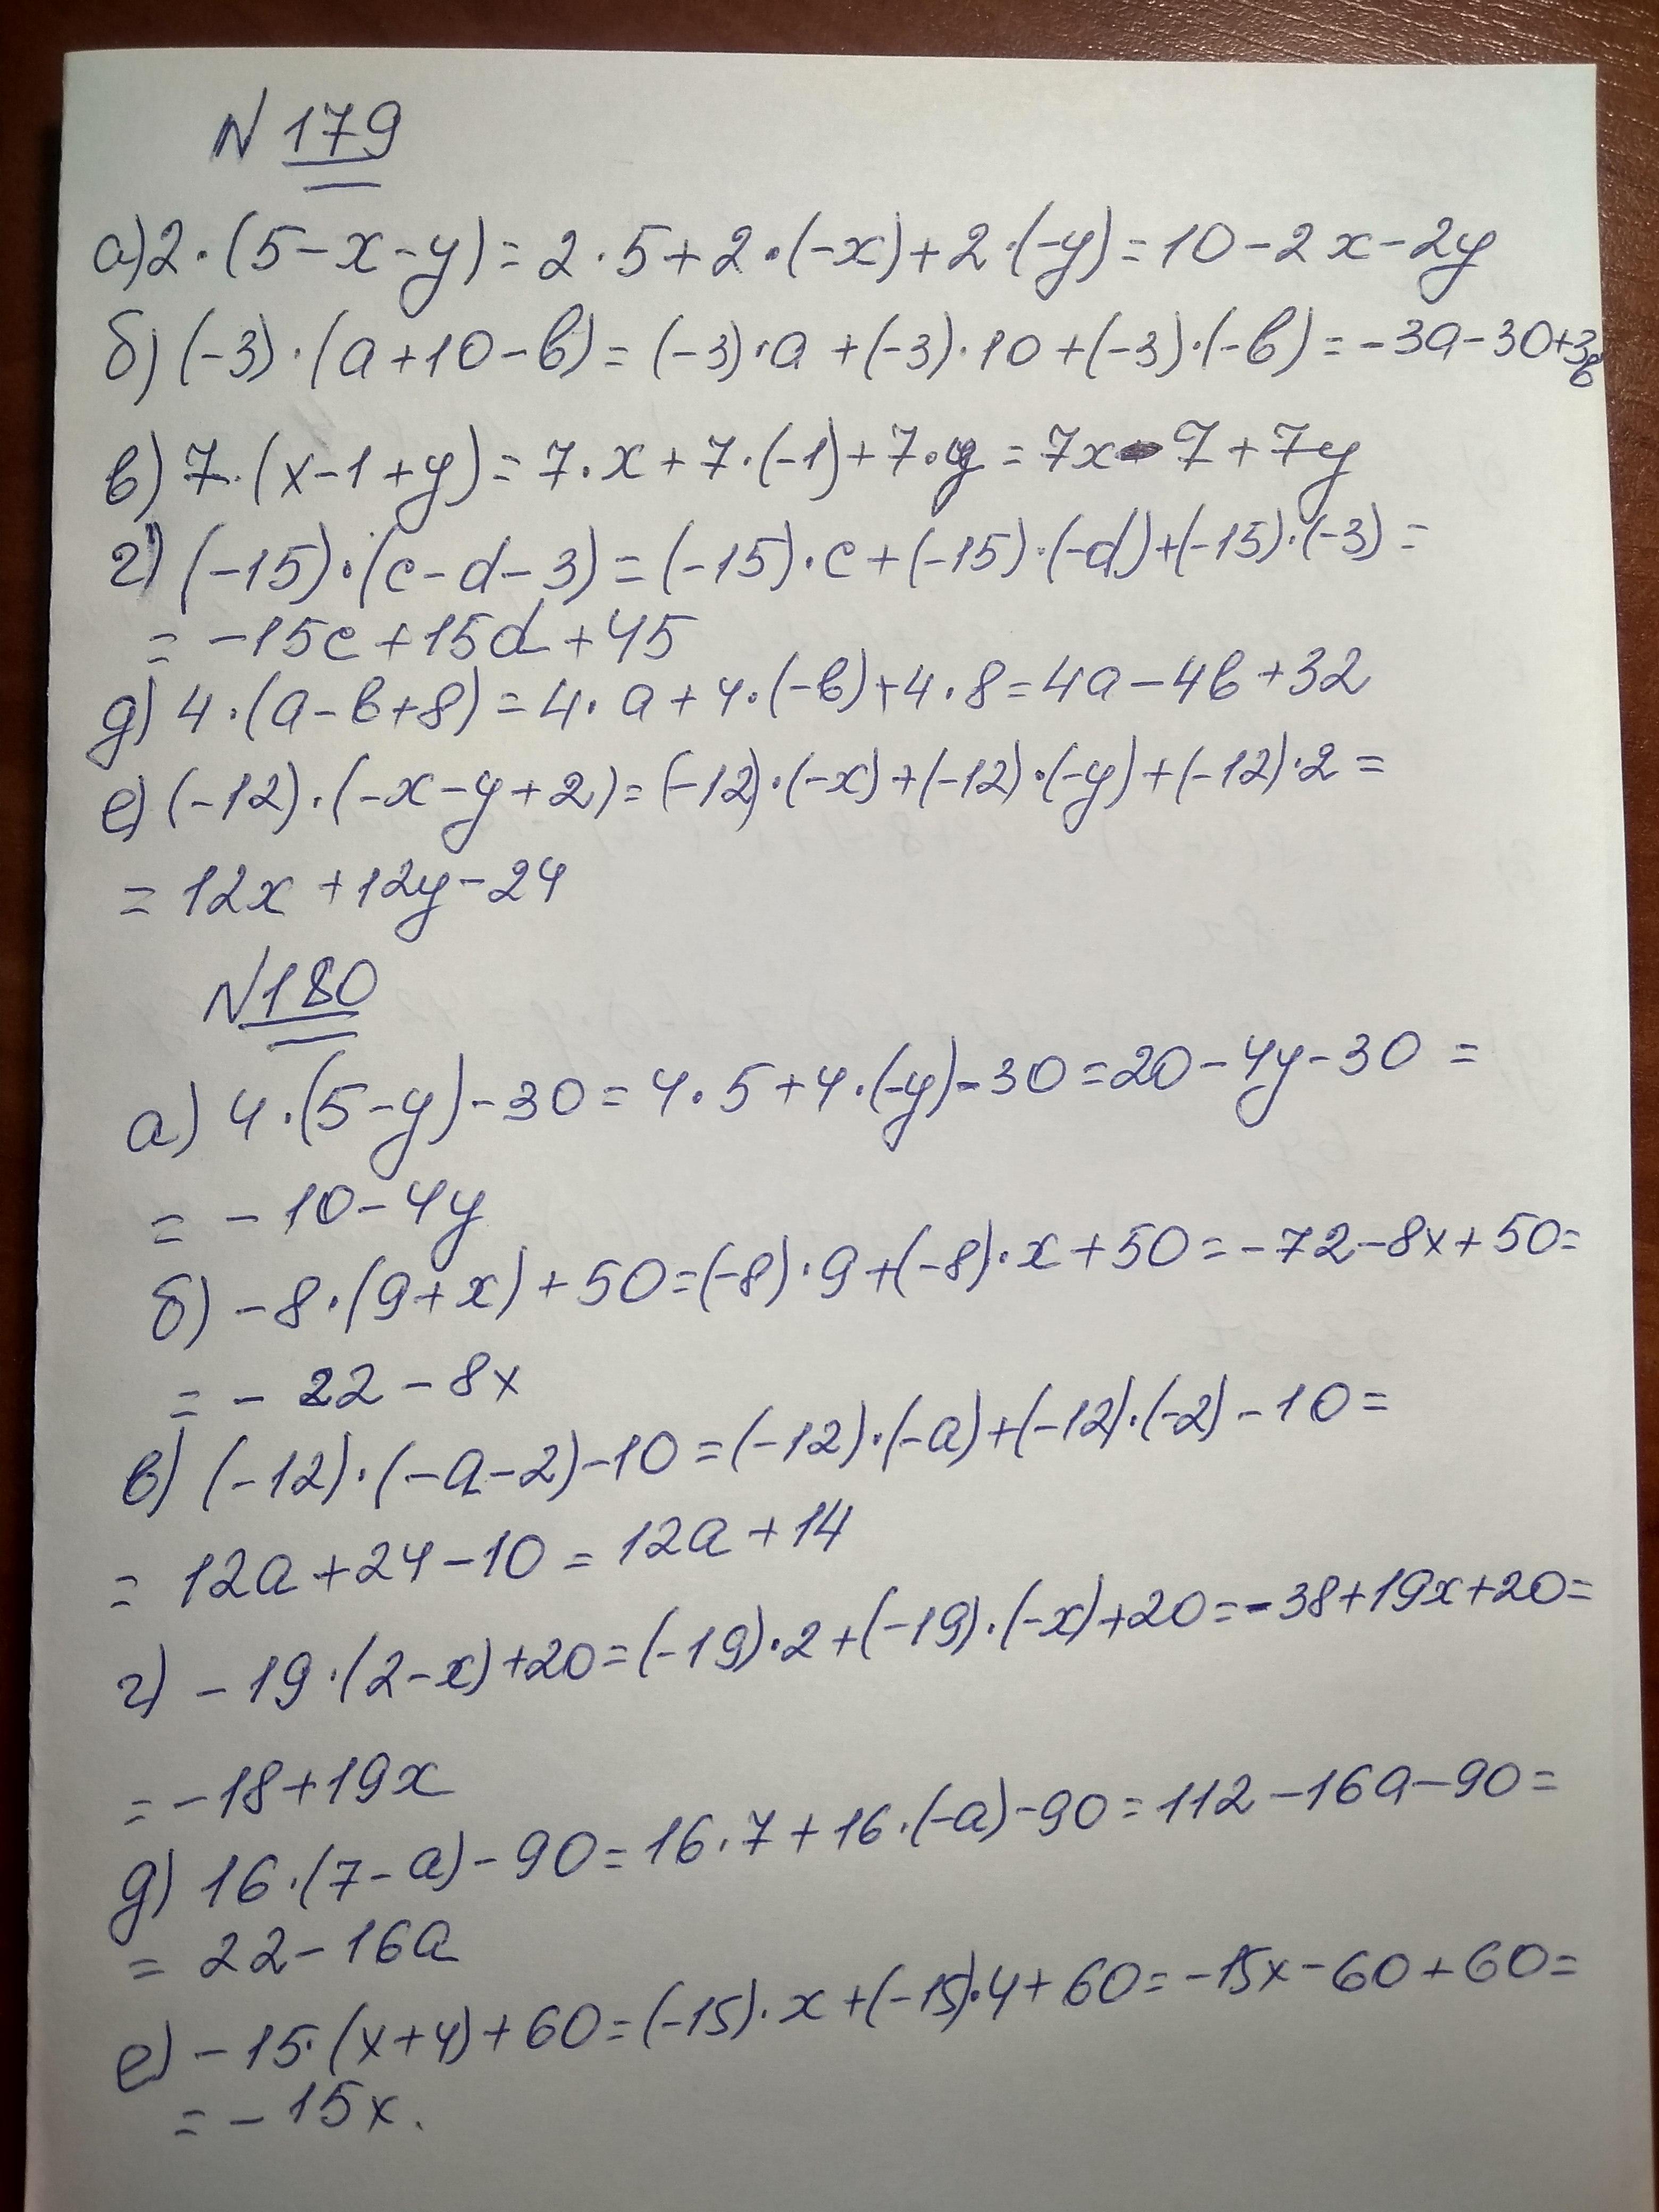 N 179
а) 2·(5-x-y)=2·5+2·(-x)+2·(-y)=10-2x-2y
б) (-3)·(a+10-b)=(-3)·a+(-3)·10+(-3)·(-b)=-3a-30+3b
в) 7·(x-1+y)=7·x+7·(-1)+7·y=7x-7+7y
г) (-15)·(c-d-3)=(-15)·c+(-15)·(-d)+(-15)·(-3)=
= -15c+15d+45
д) 4·(a-b+8)=4·a+4·(-b)+4·8=4a-4b+32
е) (-12)·(-x-y+2)=(-12)·(-x)+(-12)·(-y)+(-12)·2=
= 12x+12y-24
N 180
а) 4·(5-y)-30=4·5+4·(-y)-30=20-4y-30=
= -10-4y
б) -8·(9+x)+50=(-8)·9+(-8)·x+50=-72-8x+50=
= -22-8x
в) (-12)·(-a-2)-10=(-12)·(-a)+(-12)·(-2)-10=
= 12a+24-10=12a+14
г) -19·(2-x)+20=(-19)·2+(-19)·(-x)+20=-38+19x+20=
= -18+19x
д) 16·(7-a)-90=16·7+16·(-a)-90=112-16a-90=
= 22-16a
е) -15·(x+4)+60=(-15)·x+(-15)·4+60=-15x-60+60=
= -15x.